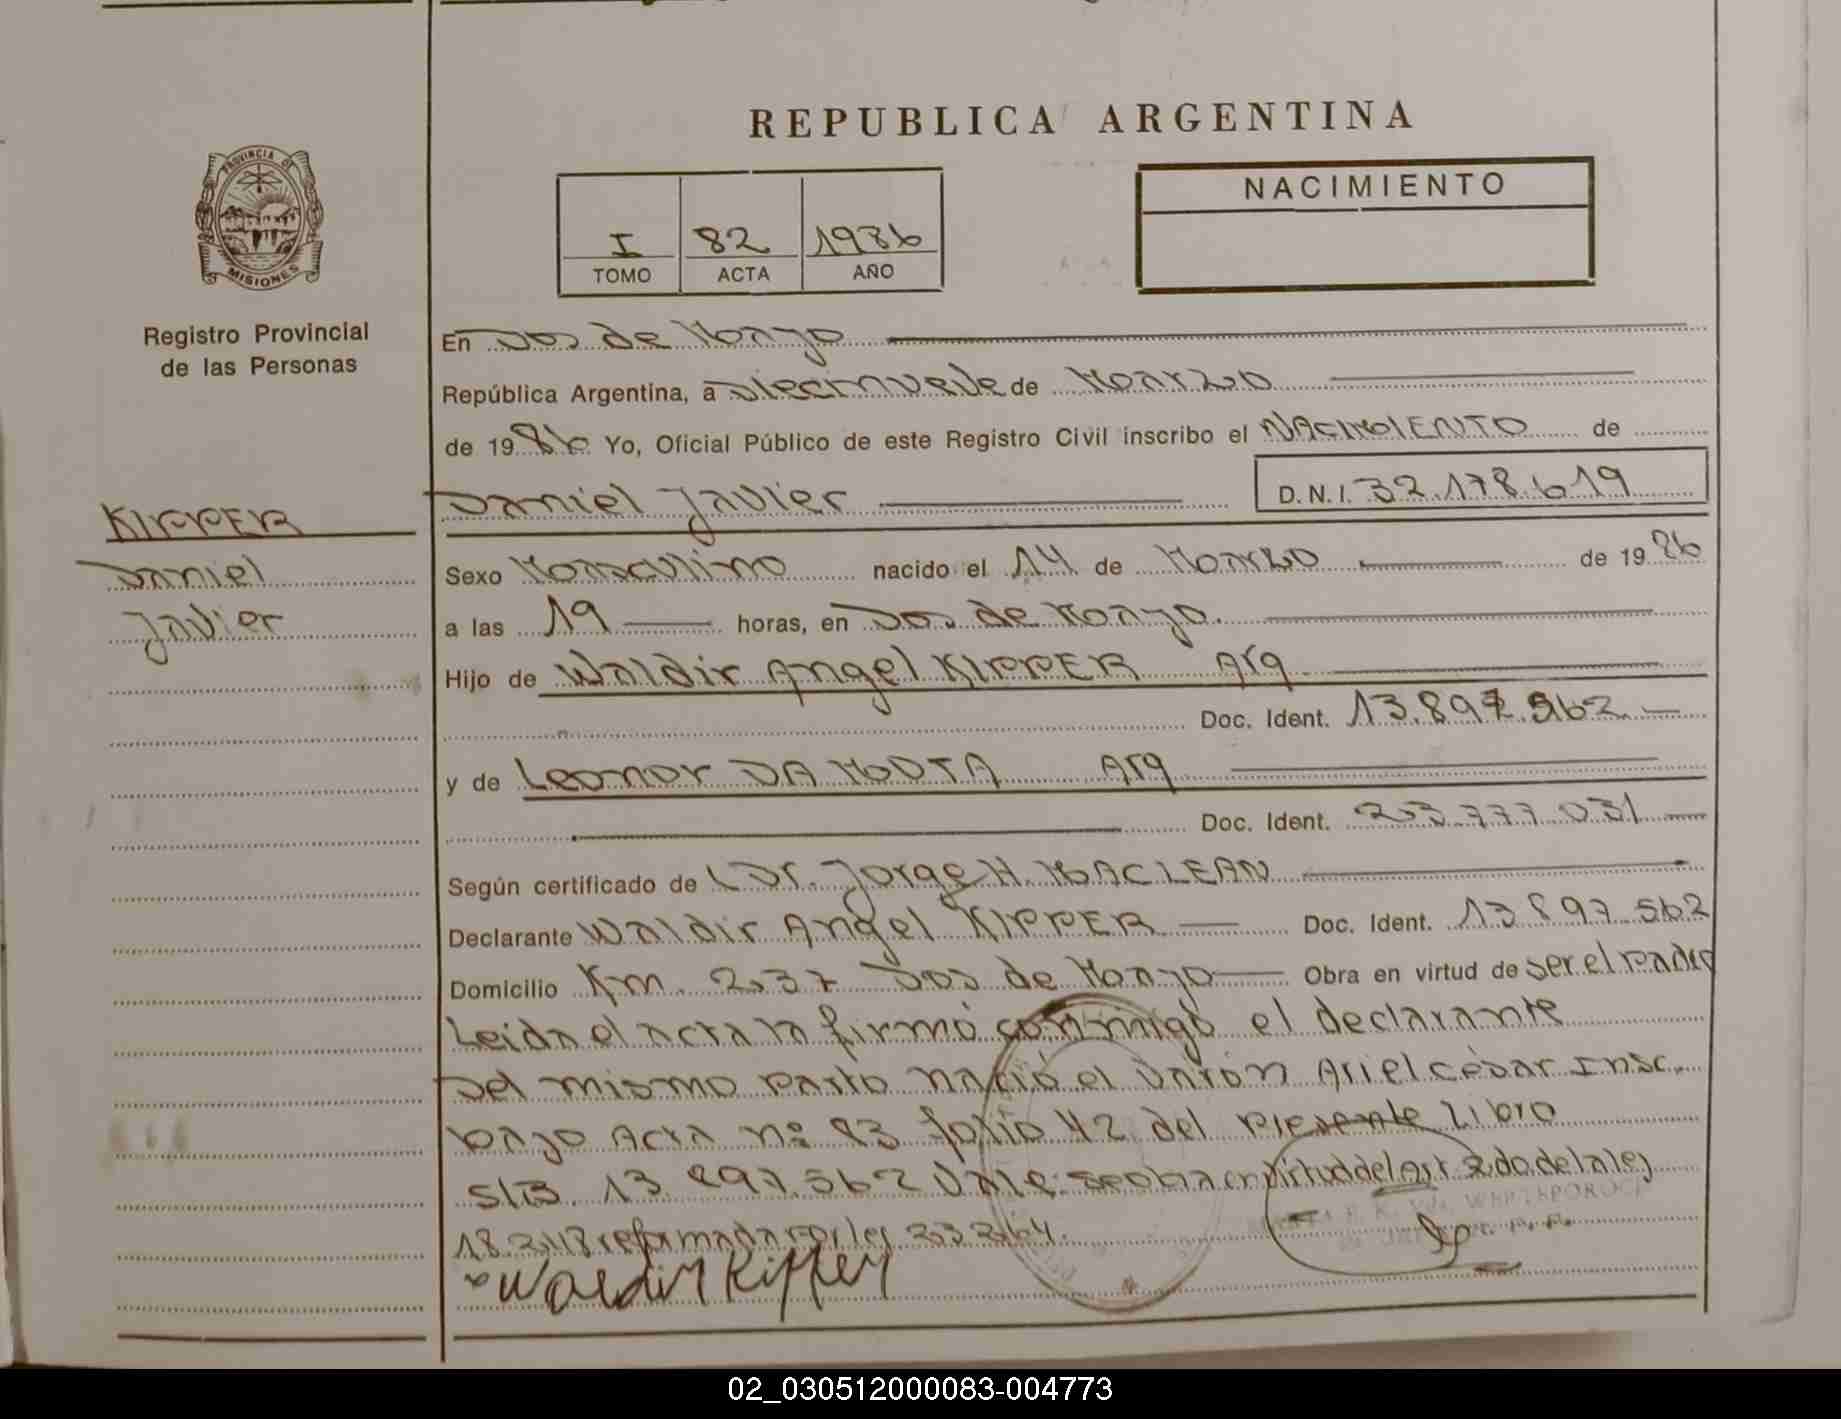 REPUBLICA ARGENTINA
PROVINCIA DE
MISIONES
Registro Provincial
de las Personas
I 82 1986
TOMO ACTA AÑO
NACIMIENTO
En Dos de Mayo
República Argentina, a Diecinueve de Marzo
de 1986 Yo, Oficial Público de este Registro Civil inscribo el NACIMIENTO de
KIPPER
Daniel
Javier
Daniel Javier D.N.I. 32.178.619
Sexo Masculino nacido el 14 de Marzo de 1986
a las 19 horas, en Dos de Mayo.
Hijo de Waldir Angel KIPPER Arg
Doc. Ident. 13.897.562
y de Leonor DA MOTTA Arg
Doc. Ident. 23.777.031
Según certificado de Dr. Jorge H. MACLEAN
Declarante Waldir Angel KIPPER Doc. Ident. 13 897 562
Domicilio Km. 237 Dos de Mayo Obra en virtud de ser el Padre
Leida el acta la firmó conmigo el declarante
Del mismo parto nació el varón Ariel césar Insc.
bajo Acta nº 83 folio 42 del presente Libro
S/B. 13 897.562 Vale: se obra en virtud del Art 2do de la ley
18.248 reformada por ley 23.264.
Waldir Kipper
02_030512000083-004773